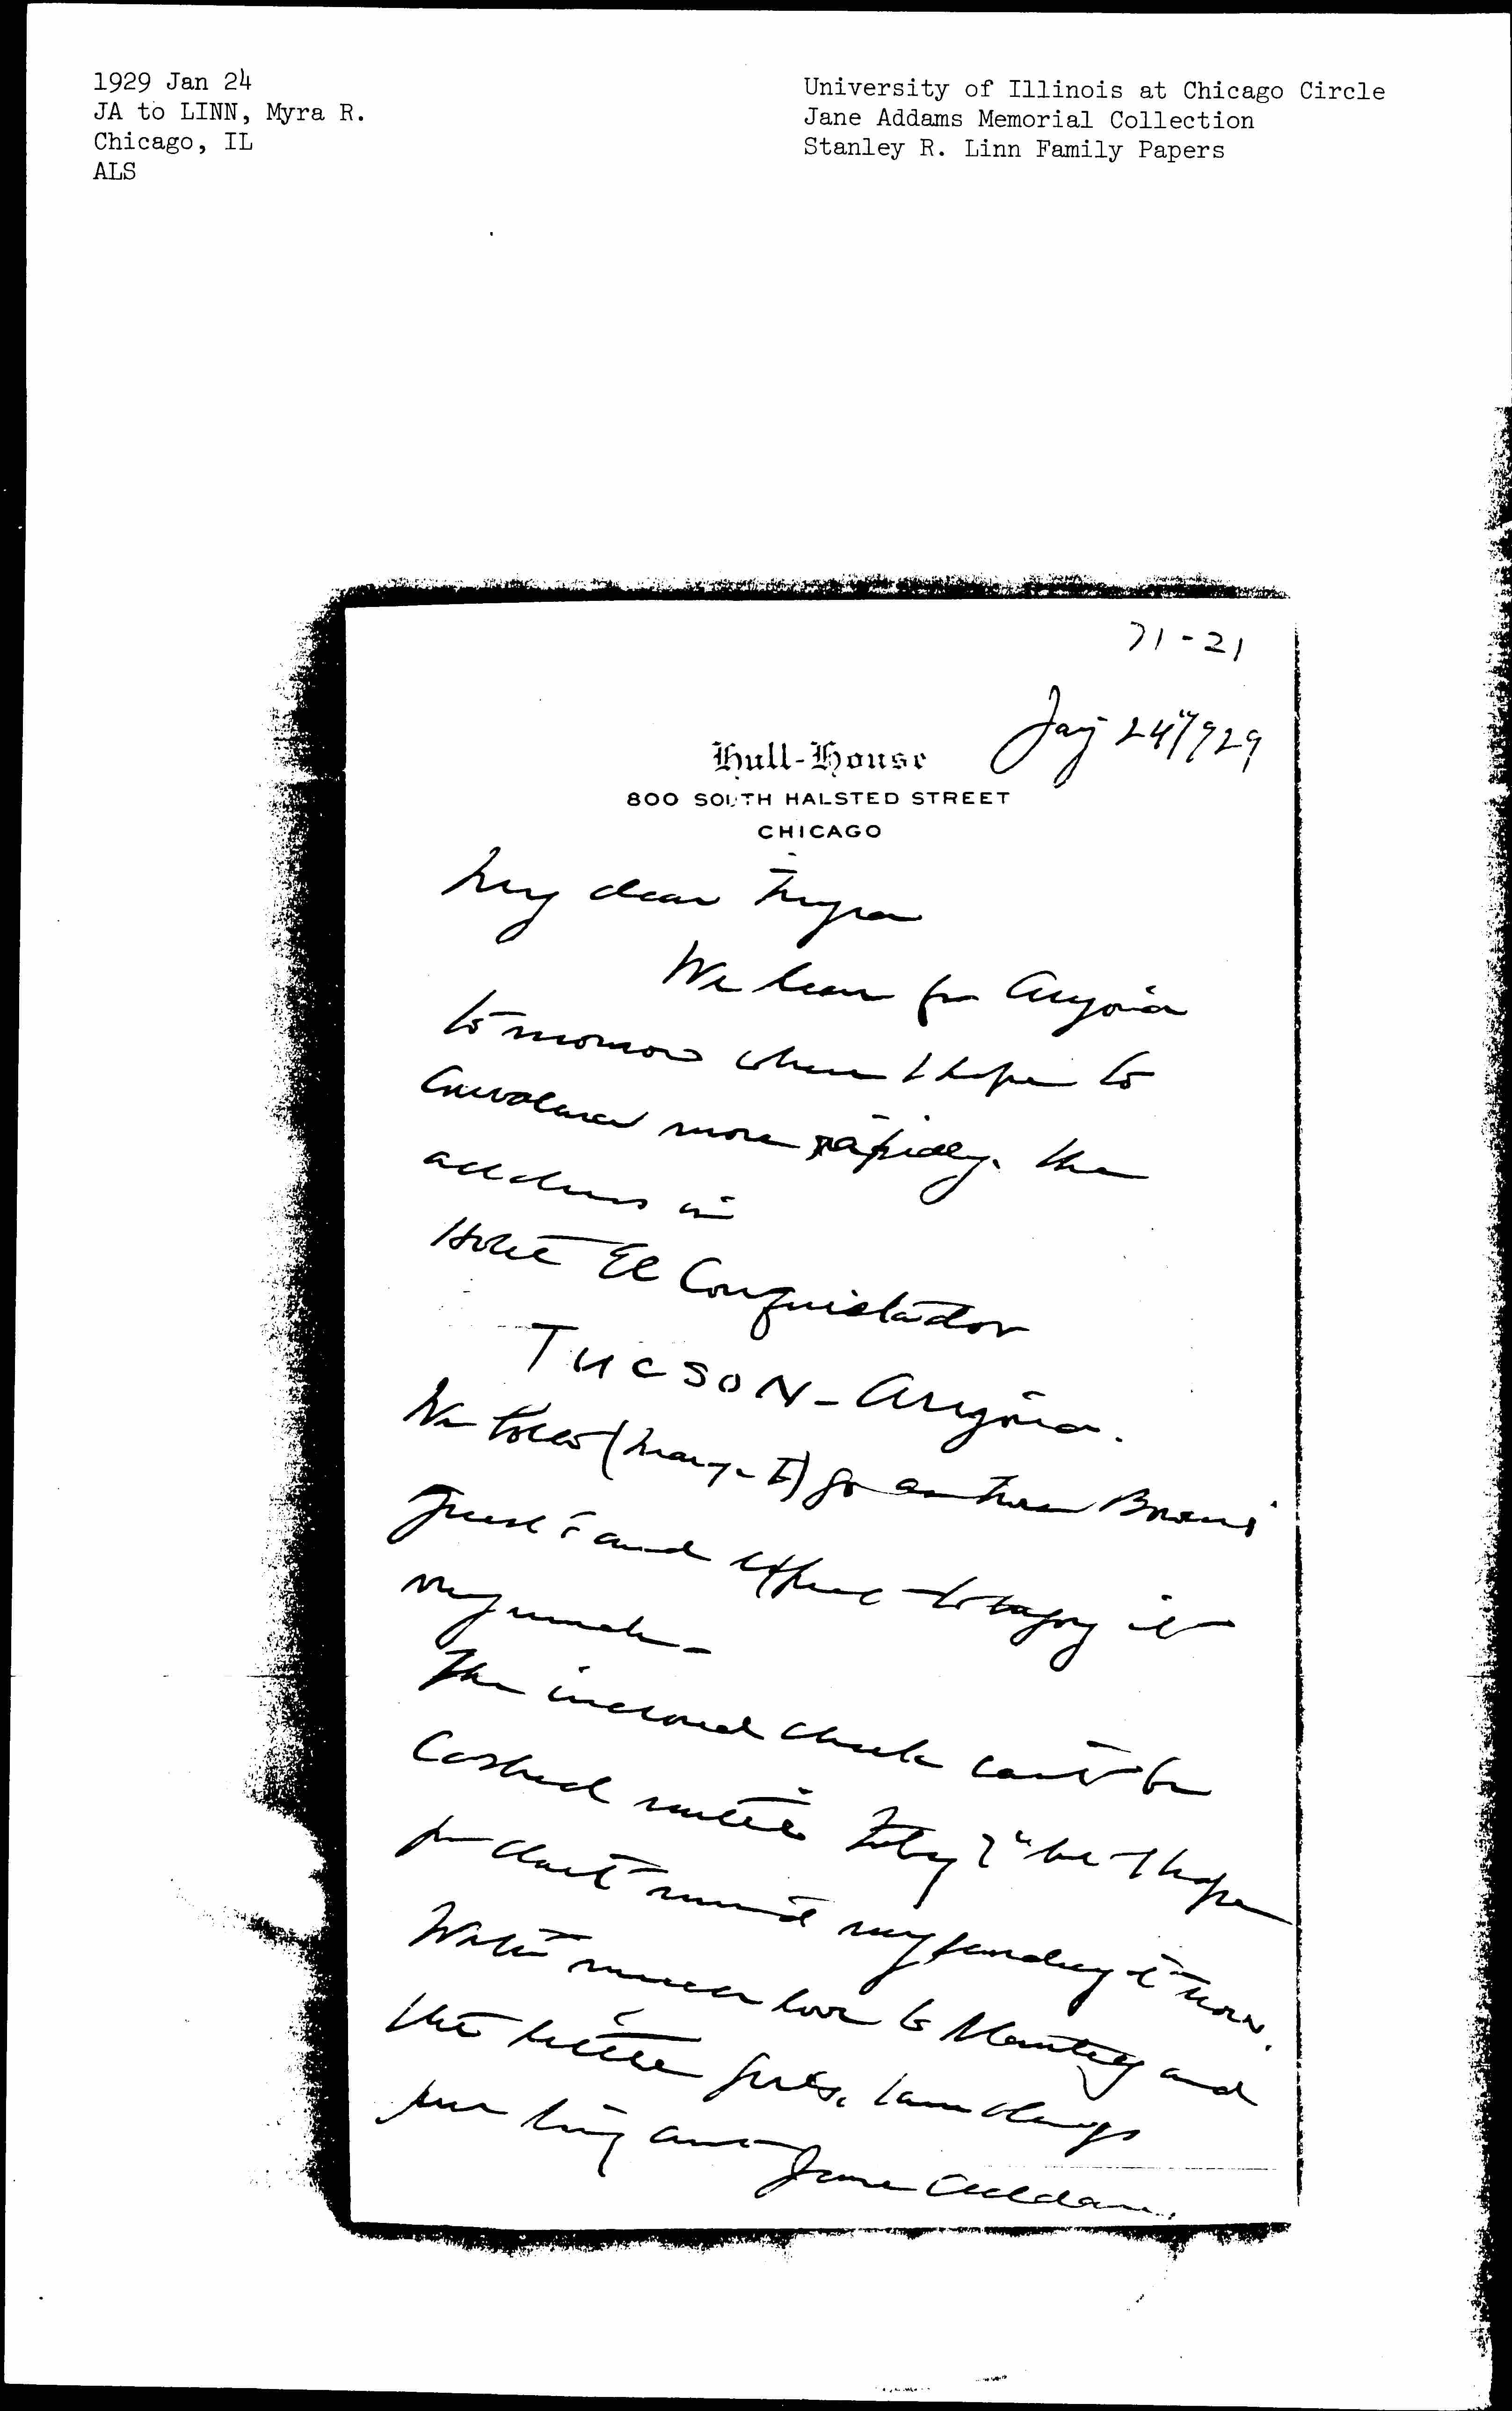 1929 Jan 24
JA to LINN, Myra R.
Chicago, IL
ALS
University of Illinois at Chicago Circle
Jane Addams Memorial Collection
Stanley R. Linn Family Papers
71-21
Jany 24" 1929
Hull-House
800 SOUTH HALSTED STREET
CHICAGO
My dear Myra
We leave for Arizona
tomorrow where I hope to
convalesce more rapidly. The
address is
Hotel El Conquistador
TUCSON - Arizona.
We both (Mary & I) go as Mrs Bowen's
guests and expect to enjoy it
very much -
The inclosed check can't be
cashed until Feby but I hope
you don't mind my sending it now.
With much love to Stanley and
the little girls, I am always
your loving aunt
Jane Addams